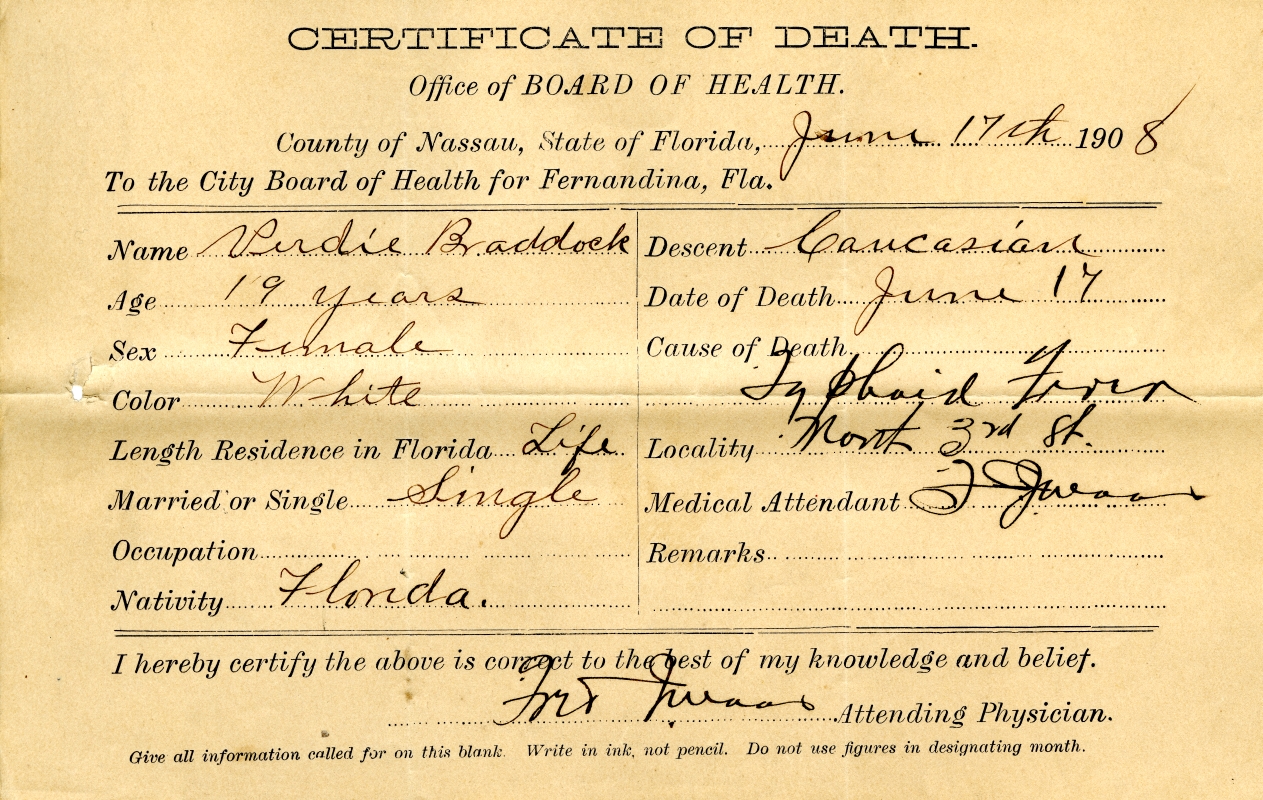 CERTIFICATE OF DEATH.
Office of BOARD OF HEALTH.
County of Nassau, State of Florida, June 17th 1908
To the City Board of Health for Fernandina, Fla.
Name Verdie Braddock
Age 19 years
Sex Female
Color White
Length Residence in Florida Life
Married or Single Single
Occupation
Nativity Florida.
Descent Caucasian
Date of Death June 17
Cause of Death
Typhoid Fever
Locality North 3rd St.
Medical Attendant
Remarks
I hereby certify the above is correct to the best of my knowledge and belief.
Attending Physician.
Give all information called for on this blank. Write in ink, not pencil. Do not use figures in designating month.